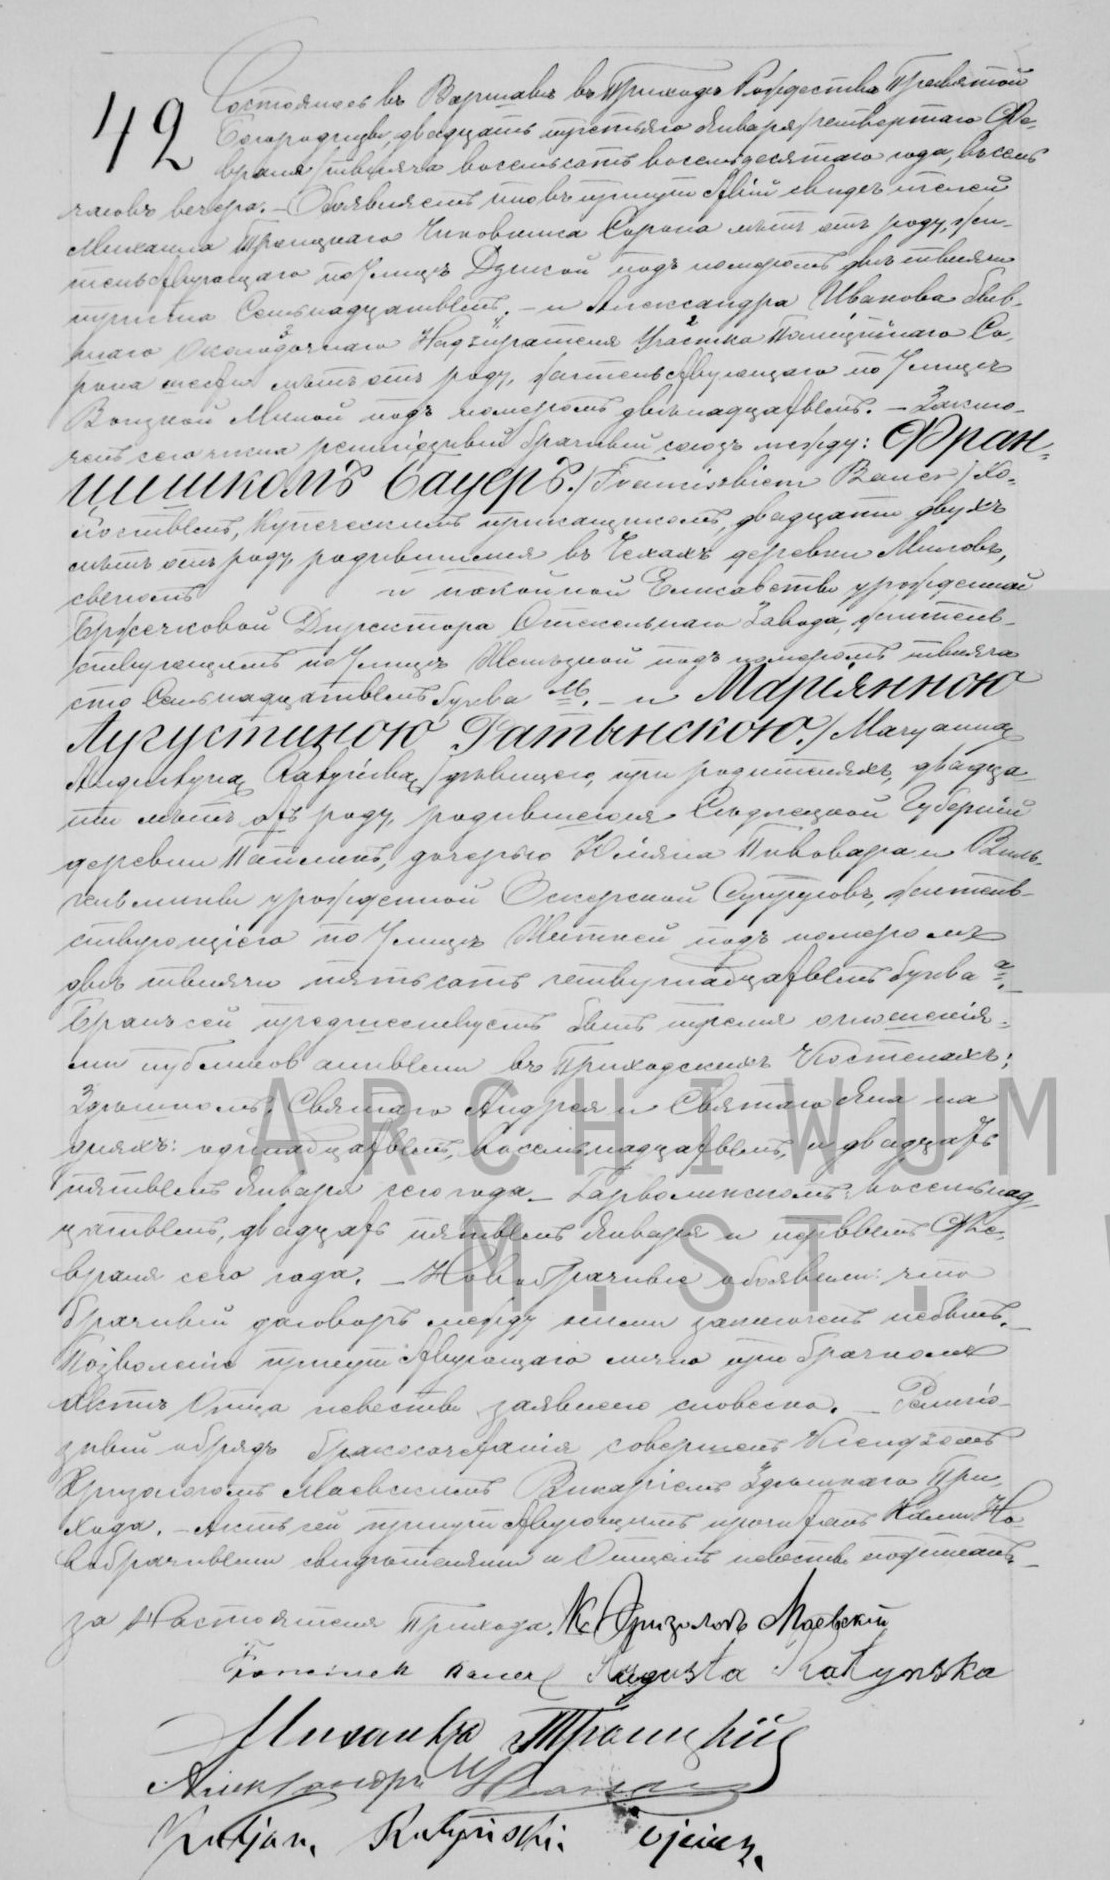 42
Состоялось въ Варшавѣ въ Приходѣ Рождества Пресвятой
Богородицы, двадцать третьяго Января/четвертаго Фе-
враля/тысяча восемьсотъ восемьдесятаго года, въ семь
часовъ вечера. – Объявляемъ что въ присутствіи свидѣтелей
Михаила Троицкаго Чиновника Сорока лѣтъ отъ роду, жи-
тельствующаго по Улицѣ Дзикой подъ номеромъ двѣ тысячи
триста Семьнадцатымъ, – и Александра Иванова быв-
шаго Околодочнаго Надзирателя Участка Полицейскаго Со-
рока лѣтъ отъ роду, жительствующаго по Улицѣ
Милой подъ номеромъ двѣнадцатымъ. – Заклю-
ченъ сего числа религіозный брачный союзъ между: Фран-
цишкомъ Бауеръ./Franciszkiem Bauer/хо-
лостымъ, Купеческимъ прикащикомъ, двадцати двухъ
лѣтъ отъ роду, родившимся въ Чехахъ деревни
сыномъ и покойной Елисаветы урожденной
Директора Завода, житель-
ствующимъ по Улицѣ Желѣзной подъ номеромъ тысяча
сто Семьнадцатымъ буква М. – и Маріянною
Августиною Ратынскою./Maryanną
Augustyną Ratyńską/дѣвицею, при родителяхъ, двадца-
ти лѣтъ отъ роду, родившеюся Сѣдлецкой Губерніи
деревни дочерью Юліяна Пивовара и Виль-
гельмины урожденной Супруговъ, житель-
ствующею по Улицѣ Житней подъ номеромъ
двѣ тысячи пятьсотъ четырнадцатымъ буква а.
Бракъ сей предшествуетъ бытъ тремя оглошенія-
ми публикованными въ Приходскихъ Костелахъ:
Здѣшномъ, Святаго Андрея и Святаго Яна на
дняхъ: одинадцатымъ, восемьнадцатымъ, и двадцать
пятымъ Января сего года. – Гарволинскомъ: восемьнад-
цатымъ, двадцать пятымъ Января и первымъ Фе-
враля сего года. – Новобрачные объявили: что
брачный договоръ между ними заключенъ небылъ. –
Позволеніе присутствующаго лично при брачномъ
Актѣ Отца невесты заявлено словесно. – Религіо-
зный обрядъ бракосочетанія совершенъ Ксендзомъ
Хризологомъ Маевскимъ Викаріемъ Здѣшнаго При-
хода. – Актъ сей присутствующимъ прочитанъ Нами, Но-
вобрачными свидѣтелями и Отцемъ невесты подписанъ. –
За Настоятеля Прихода. К. Хризологъ Маевскій
Franciszek Bauer Augusta Ratynska
Михаилъ Троицкій
Александръ Ивановъ
Juljan Ratyński. ojciec,
ARCHIWUM
M. ST.